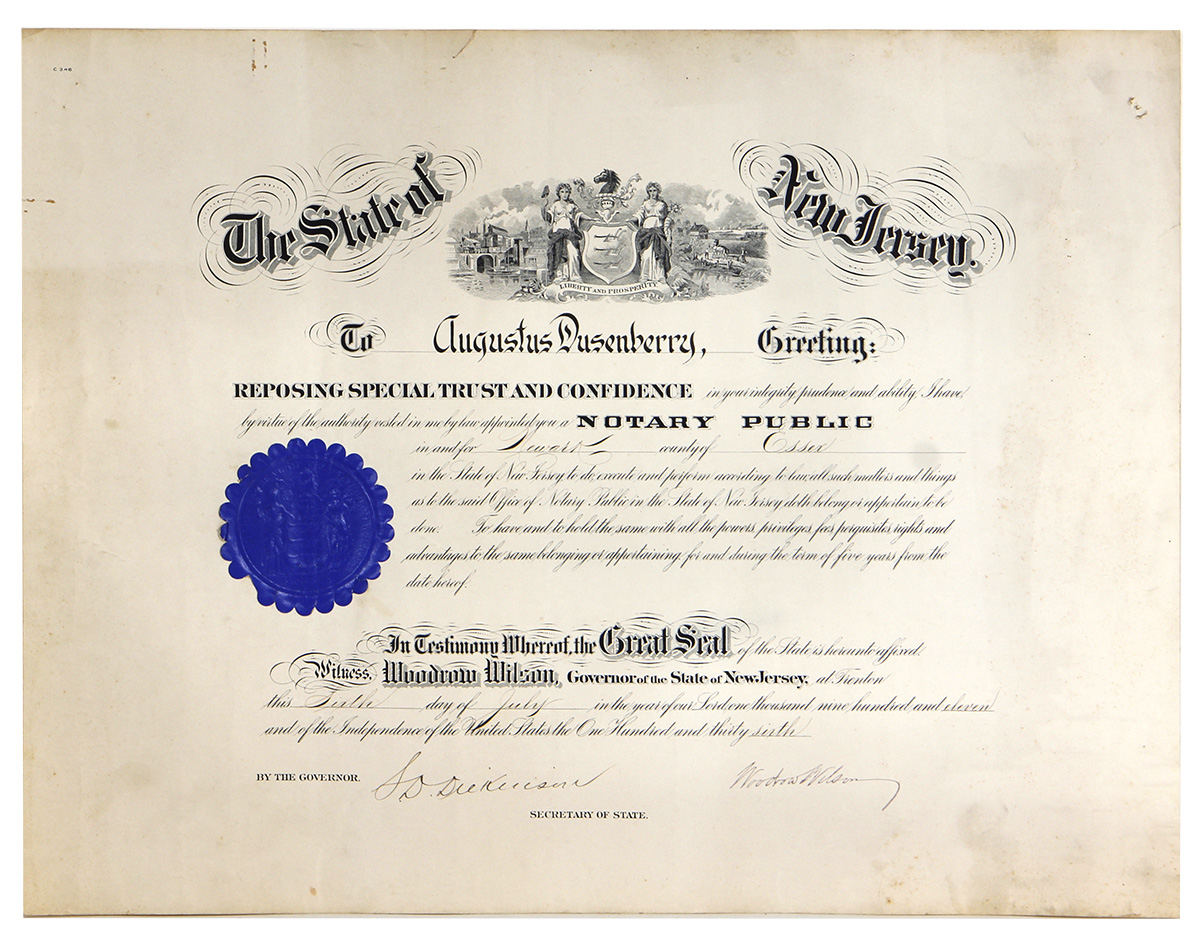 C 246
The State of New Jersey.
LIBERTY AND PROSPERITY
To Augustus Dusenberry, Greeting:
REPOSING SPECIAL TRUST AND CONFIDENCE in your integrity, prudence and ability, I have
by virtue of the authority vested in me by law appointed you a NOTARY PUBLIC
in and for Newark county of Essex
in the State of New Jersey to do, execute and perform according to law, all such matters and things
as to the said Office of Notary Public in the State of New Jersey doth belong or appertain to be
done. To have and to hold the same with all the powers, privileges, fees, perquisites, rights and
advantages to the same belonging or appertaining, for and during the term of five years from the
date hereof.
In Testimony Whereof, the Great Seal of the State is hereunto affixed.
Witness, Woodrow Wilson, Governor of the State of New Jersey, at Trenton
this day of July in the year of our Lord one thousand, nine hundred and eleven
and of the Independence of the United States the One Hundred and thirty sixth
BY THE GOVERNOR. S. D. Dickinson Woodrow Wilson
SECRETARY OF STATE.